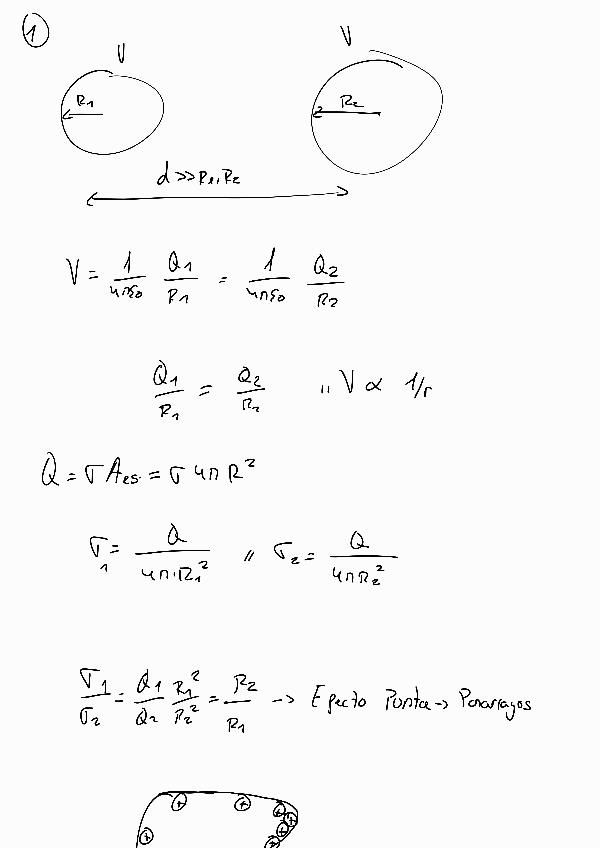 1
V V
R1 R2
d >> R1, R2
V = 1/4πε0 Q1/R1 = 1/4πε0 Q2/R2
Q1/R1 = Q2/R2 ,, V ∝ 1/r
Q = σ Aes = σ 4π R²
σ1 = Q/4π·R1² // σ2 = Q/4πR2²
σ1/σ2 = Q1/Q2 R1²/R2² = R2/R1 -> Efecto Punta -> Pararrayos
+ + + + + + +